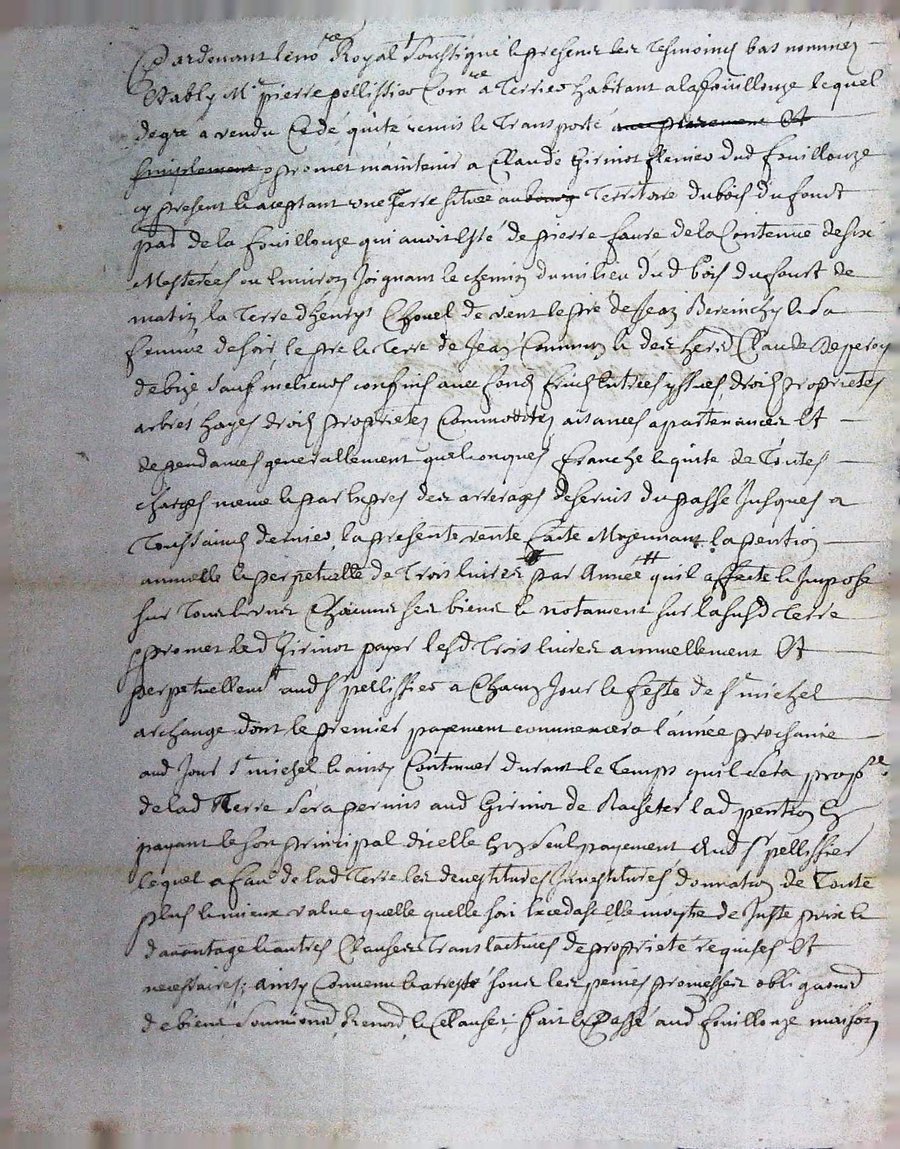 Pardevant le no.re Royal Soussigné & presens les Tesmoins bas nommez
Estably M.e pierre pellissier Com.re a Terrier habitant a la fouillouze lequel
de gre a vendu Cedé quité remis & Transporté avec purement Et
simplement promet maintenir a Claude Girinot dud fouillouze
cy present & aceptant une Terre située au bourg Territoire du bois du fourt
pas de la fouillouze qui avoit Esté de pierre faure de la Contenue de six
Mesterées ou Environ Joignant le chemin du milieu dud bois du fourt de
matin la Terre d'henry Chovel de vent le pre de Jean & Sa
femme de soir le pre & Terre de Jean & des hers Claude
de bize sauf meilleurs confins avec fonds fruits Entrées yssues droits proprietés
arbres hayes droits proprietes Commodites aisances apartenances Et
dependances generallement quelconques franche & quite de Toutes
charges mesme & par Expres des arrerages de servis du passé Jusques a
Toussaincts dernier, la presente vente faite Moyennant la pention
annuelle & perpetuelle de Trois livres par Année qu'il affecte & Impose
sur Tous Chacuns ses biens & notament sur la susd Terre
promet led Girinot payer lesd Trois livres annuellement Et
perpetuellem.t aud s.r pellissier a Chacun Jour & feste de s.t michel
archange dont le premier payement commencera l'année prochaine
aud Jour s.t michel & ainsy Continuer durant le Temps qu'il sera prop.re
de lad Terre sera permis aud Girinot de Racheter lad pention En
payant le sort principal d'icelle En un seul payement Aud s.r pellissier
lequel a fait de lad Terre les devestitures Investitures donnation de Toute
plus & mieux value quelle quelle soit Excedast elle moytie de Juste prix &
davantage & autres Clauses Translatives de proprieté requises Et
necessaires; ainsy Convenu & aresté sous les peines promesses obligaons
de biens Soumisons Renons & Clauses: fait & Passé aud fouillouze maison